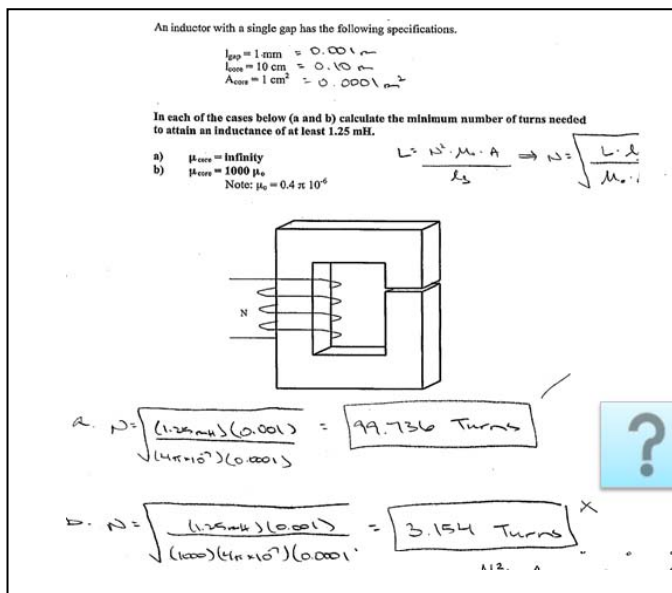 An inductor with a single gap has the following specifications.
lgap = 1 mm = 0.001 m
lcore = 10 cm = 0.10 m
Acore = 1 cm² = 0.0001 m²
In each of the cases below (a and b) calculate the minimum number of turns needed
to attain an inductance of at least 1.25 mH.
a) μcore = Infinity
b) μcore = 1000 μo
Note: μo = 0.4 π 10⁻⁶
L = N²·μo·A / lg ⇒ N = √(L·l / μo·
N
a. N = √((1.25mH)(0.001) / (4π×10⁻⁷)(0.0001)) = 99.736 Turns
b. N = √((1.25mH)(0.001) / (1000)(4π×10⁻⁷)(0.0001 = 3.154 Turns X
?